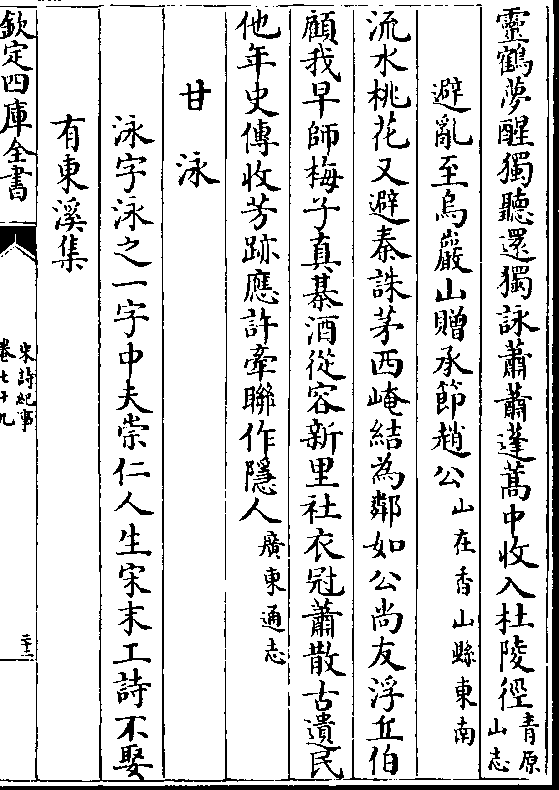 靈鶴夢醒獨聽還獨詠蕭蕭蓬蒿中收入杜陵徑青原山志
避亂至烏巖山贈承節趙公山在香山縣東南
流水桃花又避秦誅茅西崦結為鄰如公尚友浮丘伯
顧我早師梅子真棊酒從容新里社衣冠蕭散古遺民
他年史傳收芳跡應許牽聯作隱人廣東通志
甘泳
泳字泳之一字中夫崇仁人生宋末工詩不娶
有東溪集
欽定四庫全書
宋詩紀事
卷七十九
二十二